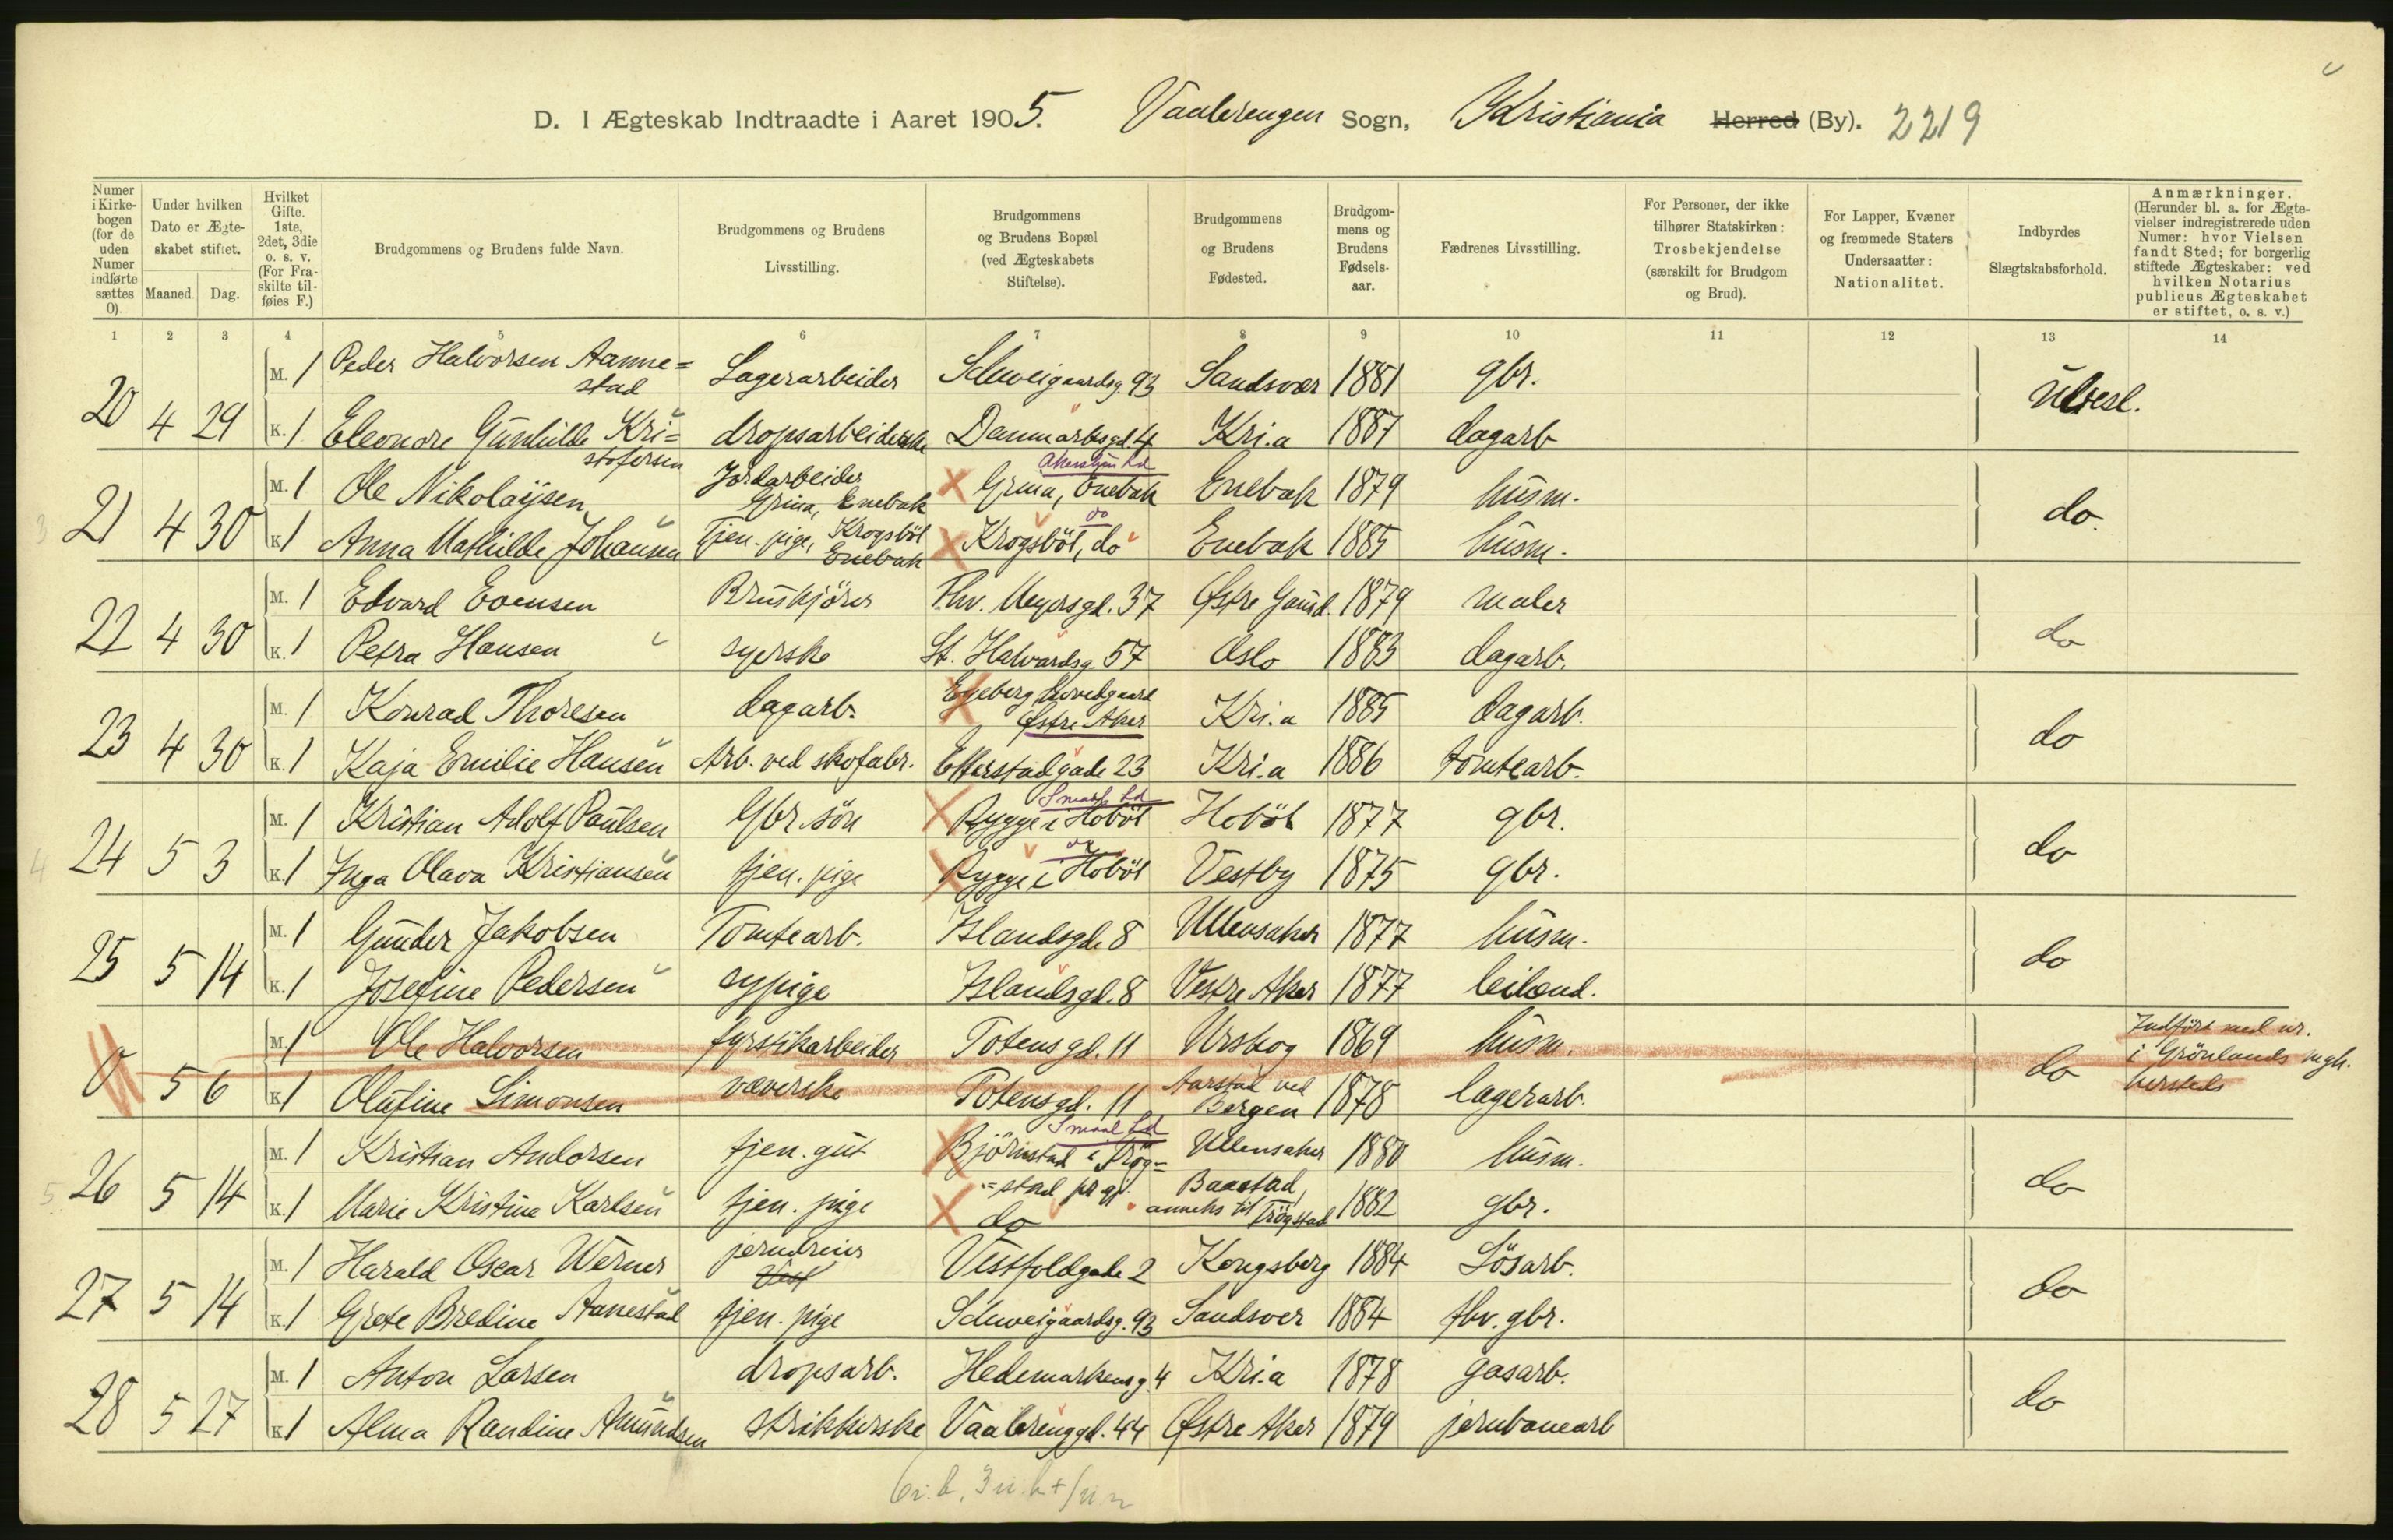 D. I Ægteskab Indtraadte i Aaret 1905. Vaalerengen Sogn, Kristiania Herred (By). 2219
Numer i Kirke-bogen (for de uden Numer indførte sættes 0).
Under hvilken Dato er Ægte-skabet stiftet.
Maaned. Dag.
Hvilket Gifte. 1ste, 2det, 3die o. s. v. (For Fra-skilte til-føies F.)
Brudgommens og Brudens fulde Navn.
Brudgommens og Brudens Livsstilling.
Brudgommens og Brudens Bopæl (ved Ægteskabets Stiftelse).
Brudgommens og Brudens Fødested.
Brudgom-mens og Brudens Fødsels-aar.
Fædrenes Livsstilling.
For Personer, der ikke tilhører Statskirken: Trosbekjendelse (særskilt for Brudgom og Brud).
For Lapper, Kvæner og fremmede Staters Undersaatter: Nationalitet.
Indbyrdes Slægtskabsforhold.
Anmærkninger. (Herunder bl. a. for Ægte-vielser indregistrerede uden Numer: hvor Vielsen fandt Sted; for borgerlig stiftede Ægteskaber: ved hvilken Notarius publicus Ægteskabet er stiftet, o. s. v.)
1 2 3 4 5 6 7 8 9 10 11 12 13 14
M. 1 Peder Halvorsen Aanne=stad Lagerarbeider Schweigaardsg. 93 Sandsvær 1881 gbr.
20 4 29 K. 1 Eleonore Gunhilde Kri=stofersen dropsarbeiderske Danmarksgd. 4 Kri.a 1887 dagarb Ubesl.
M. 1 Ole Nikolaysen Jordarbeider Grina, Enebak Grina, Enebak Akershus Ld Enebak 1879 husm.
3 21 4 30 K. 1 Anna Mathilde Johansen Tjen. pige, Krogsböl Enebak Krogsböl, do do Enebak 1885 husm. do.
M. 1 Edvard Evensen Bruskjörer Thv. Meyersgd. 37 Østre Gausd. 1879 maler
22 4 30 K. 1 Petra Hansen syerske St. Halvardsg. 57 Oslo 1883 dagarb. do
M. 1 Konrad Thoresen dagarb. Egeberg Hovedgaard Østre Aker Kri.a 1885 dagarb.
23 4 30 K. 1 Kaja Emilie Hansen Arb. ved skofabr. Etterstadgade 23 Kri.a 1886 tomtearb. do
M. 1 Kristian Adolf Paulsen Gbr. sön Rygge i Hoböl Smaal. Ld Hoböl 1877 gbr.
4 24 5 3 K. 1 Inga Olava Kristiansen tjen. pige Rygge i Hoböl do Vestby 1875 gbr. do
M. 1 Gunder Jakobsen Tomtearb. Islandsgd. 8 Ullensaker 1877 husm.
25 5 14 K. 1 Josefine Pedersen sypige Islandsgd. 8 Vestre Aker 1877 leilend. do
M. 1 Ole Halvorsen fyrstikarbeider Totensgd. 11 Urskog 1869 husm. Indfört med nr. i Grönlands mgh.
0 5 6 K. 1 Olufine Simonsen væverske Totensgd. 11 Aarstad ved Bergen 1878 lagerarb. do
M. 1 Kristian Andorsen tjen. gut Björnstad i Trög=stad prgj. Smaal. Ld Ullensaker 1880 husm.
5 26 5 14 K. 1 Marie Kristine Karlsen tjen. pige do Baastad, anneks til Trögstad 1882 gbr. do
M. 1 Harald Oscar Werner jerndreier Vestfoldgade 2 Kongsberg 1884 Lösarb.
27 5 14 K. 1 Grete Bredine Aanestad tjen. pige Schweigaardsg. 93 Sandsver 1884 fhv. gbr. do
M. 1 Anton Larsen dropsarb. Hedemarkensg. 4 Kri.a 1878 gasarb.
28 5 27 K. 1 Alma Randine Amundsen strikkerske Vaalerenggd. 44 Østre Aker 1879 jernbanearb do